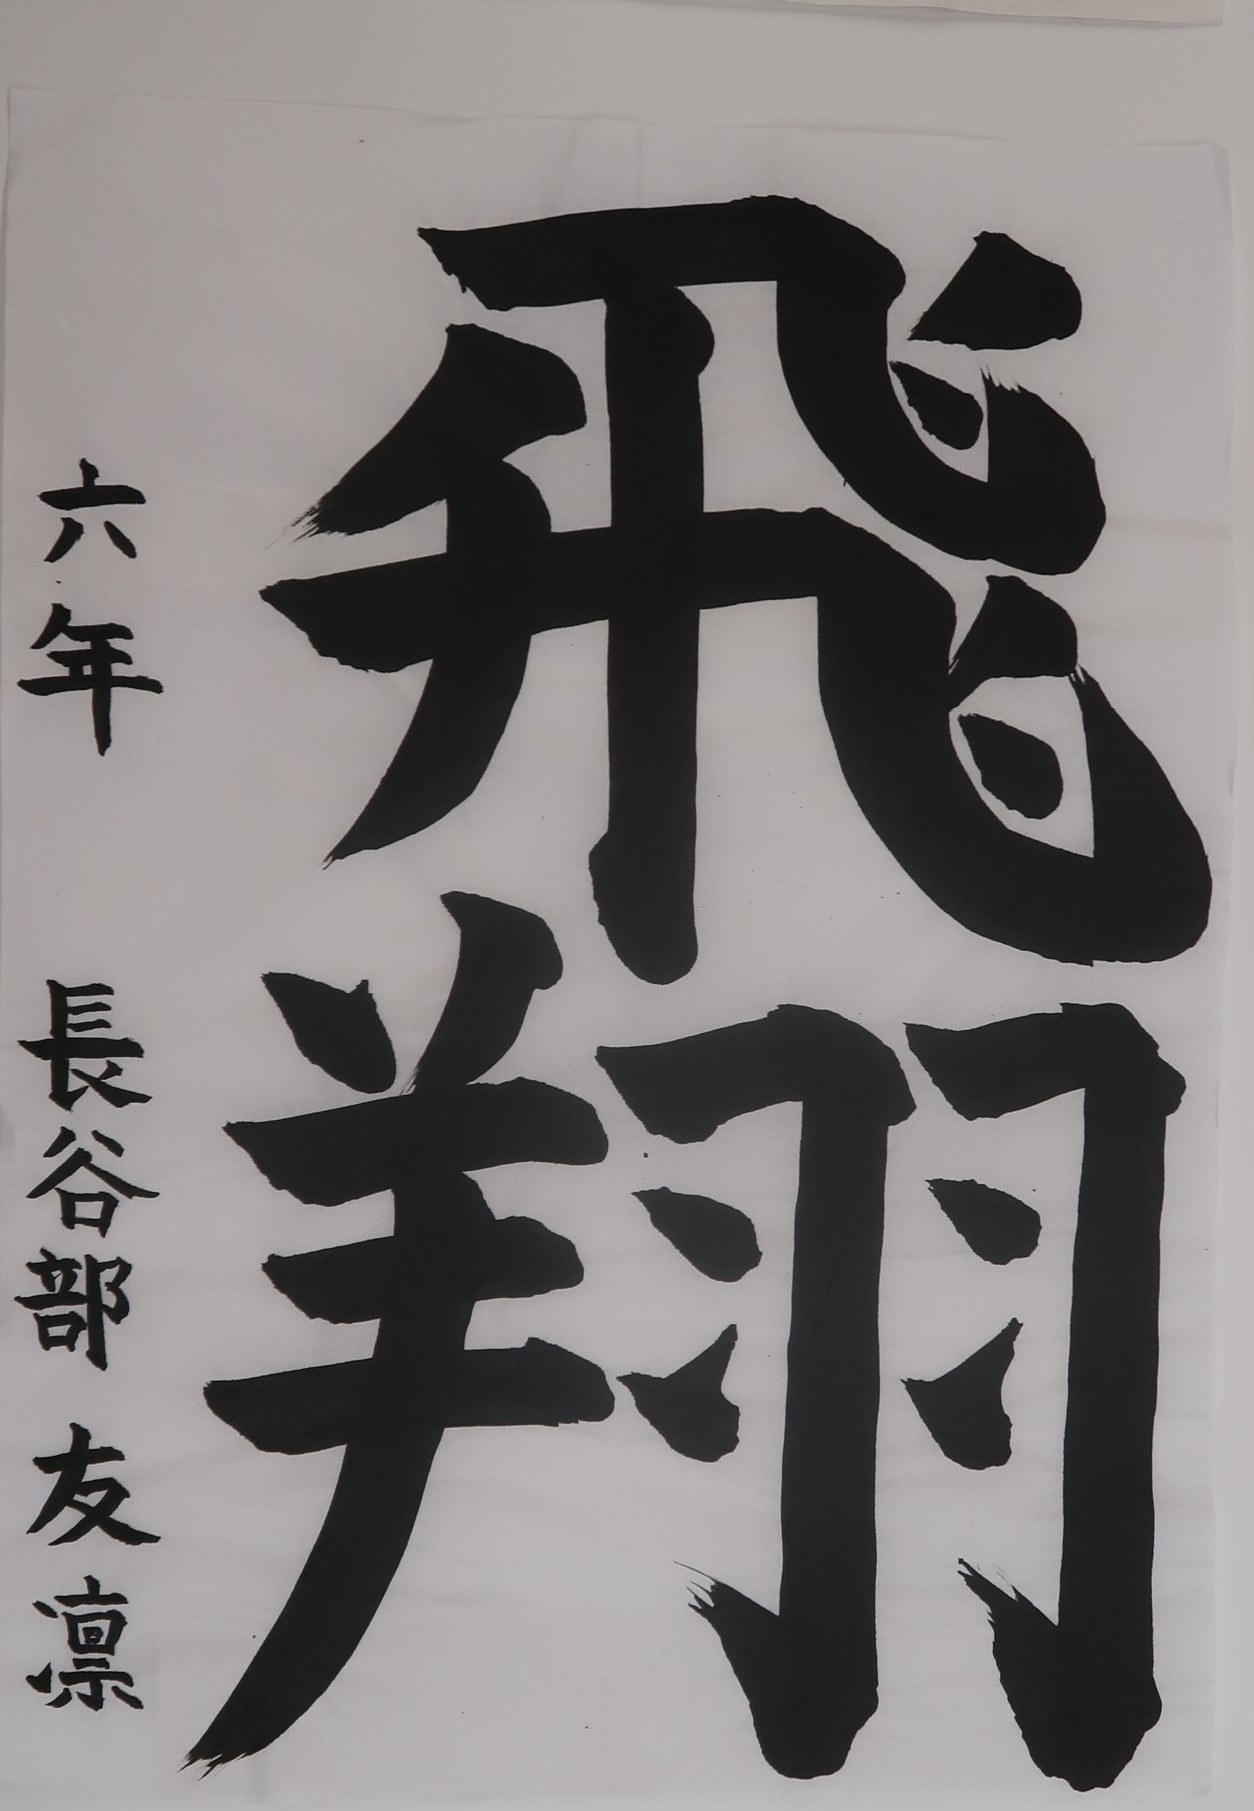 飛翔
六年 長谷部 友凛